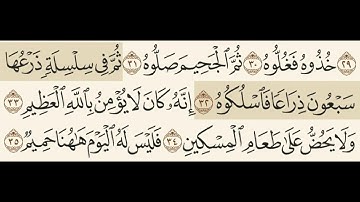 ٢٩ خُذُوهُ فَغُلُّوهُ ٣٠ ثُمَّ ٱلْجَحِيمَ صَلُّوهُ ٣١ ثُمَّ فِى سِلْسِلَةٍ ذَرْعُهَا
سَبْعُونَ ذِرَاعًا فَٱسْلُكُوهُ ٣٢ إِنَّهُۥ كَانَ لَا يُؤْمِنُ بِٱللَّهِ ٱلْعَظِيمِ ٣٣
وَلَا يَحُضُّ عَلَىٰ طَعَامِ ٱلْمِسْكِينِ ٣٤ فَلَيْسَ لَهُ ٱلْيَوْمَ هَٰهُنَا حَمِيمٌ ٣٥